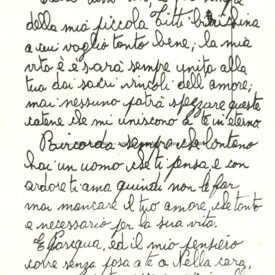 della mia piccola Titti
a cui voglio tanto bene; la mia
vita è e sarà sempre unita alla
tua dai sacri vincoli dell amore;
mai nessuno potrà spezzare queste
catene che mi uniscono a te in eterno.
Ricorda sempre che lontano
hai un uomo che ti pensa e con
ardore ti ama quindi non le far
mai mancare il tuo amore, che tanto
è necessario per la sua vita.
E Pasqua, ed il mio pensiero
corre senza posa a te o Nalla cara,